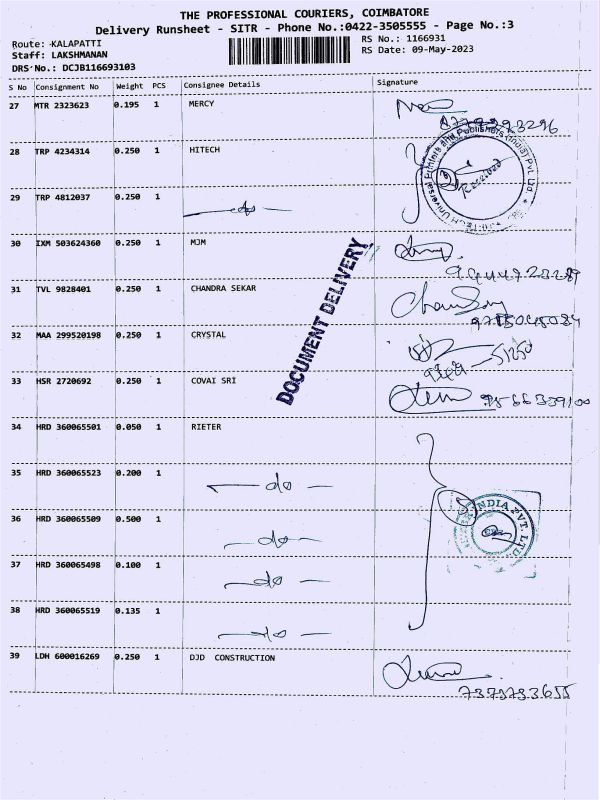 THE PROFESSIONAL COURIERS, COIMBATORE
Delivery Runsheet - SITR - Phone No.:0422-3505555 - Page No.:3
Route: KALAPATTI
RS No.: 1166931
Staff: LAKSHMANAN
RS Date: 09-May-2023
DRS No.: DCJB116693103
S No Consignment No Weight PCS Consignee Details Signature
27 MTR 2323623 0.195 1 MERCY
28 TRP 4234314 0.250 1 HITECH
Received
29 TRP 4812037 0.250 1 do
30 IXM 503624360 0.250 1 MJM
31 TVL 9828401 0.250 1 CHANDRA SEKAR
DOCUMENT DELIVERY
32 MAA 299520198 0.250 1 CRYSTAL
33 HSR 2720692 0.250 1 COVAI SRI
34 HRD 360065501 0.050 1 RIETER
35 HRD 360065523 0.200 1 do
5
INDIA PVT. LTD.
36 HRD 360065509 0.500 1 do
37 HRD 360065498 0.100 1 do
38 HRD 360065519 0.135 1 do
39 LDH 600016269 0.250 1 DJD CONSTRUCTION
7373733655